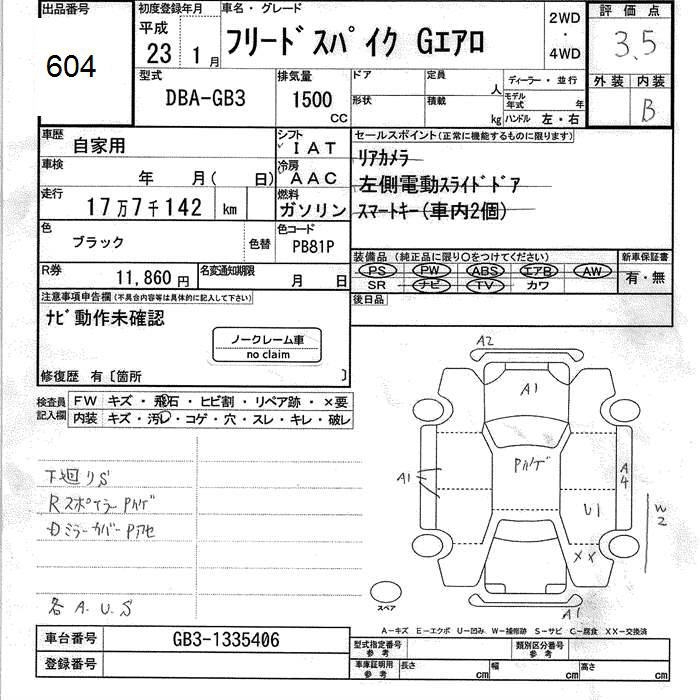 出品番号
604
初度登録年月
平成
23 1月
車名・グレード
フリードスパイク Gエアロ
2WD
・
4WD
評価点
3.5
外装 内装
B
型式
DBA-GB3
排気量
1500
CC
ドア
定員
人
形状
積載
kg
ディーラー・並行
モデル年式 年
ハンドル 左・右
車歴
自家用
シフト
IAT
車検
年 月( 日)
冷房
AAC
走行
17万7千142 km
燃料
ガソリン
色
ブラック
色替
色コード
PB81P
R券
11,860円
名変通知期限
月 日
セールスポイント(正常に機能するものに限ります)
リアカメラ
左側電動スライドドア
スマートキー(車内2個)
装備品 (純正品に限り○をつけてください)
PS PW ABS エアB AW
SR ナビ TV カワ
新車保証書
有・無
後日品
注意事項申告欄(不具合内容等は具体的に記入して下さい)
ナビ動作未確認
ノークレーム車
no claim
修復歴 有〔箇所 〕
検査員
記入欄
FW キズ・飛石・ヒビ割・リペア跡・×要
内装 キズ・汚レ・コゲ・穴・スレ・キレ・破レ
下廻りS
Rスポイラー Pハゲ
Dミラーカバー Pアセ
各 A.U.S
A2
A1
Pハゲ
A1
A4
U1
W2
XX
A1
スペア
A-キズ E-エクボ U-凹み W-補修跡 S-サビ C-腐食 XX-交換済
車台番号
GB3-1335406
登録番号
型式指定番号
参考
類別区分番号
参考
車庫証明用
参考
長さ cm
幅 cm
高さ cm